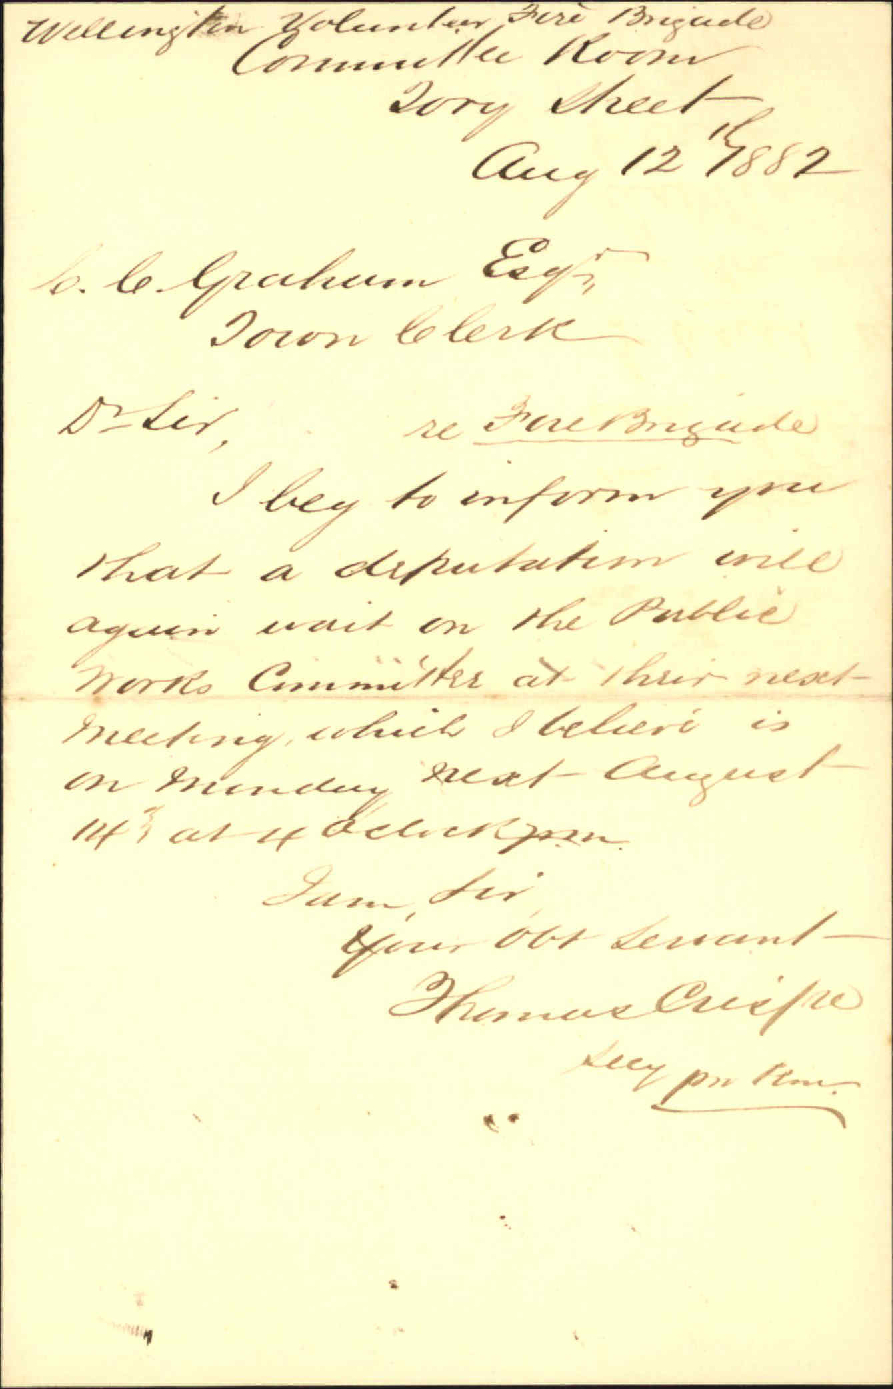 Wellington Volunteer Fire Brigade
Committee Room
Tory Street
Aug 12th 1882
C. C. Graham Esqr,
Town Clerk
Dr Sir,
re Fire Brigade
I beg to inform you
that a deputation will
again wait on the Public
Works Committee at their next
Meeting, which I believe is
on Monday next August
14th at 4 Oclock pm.
I am, Sir,
Your Obt Servant
Thomas Crispe
Secy pro tem.